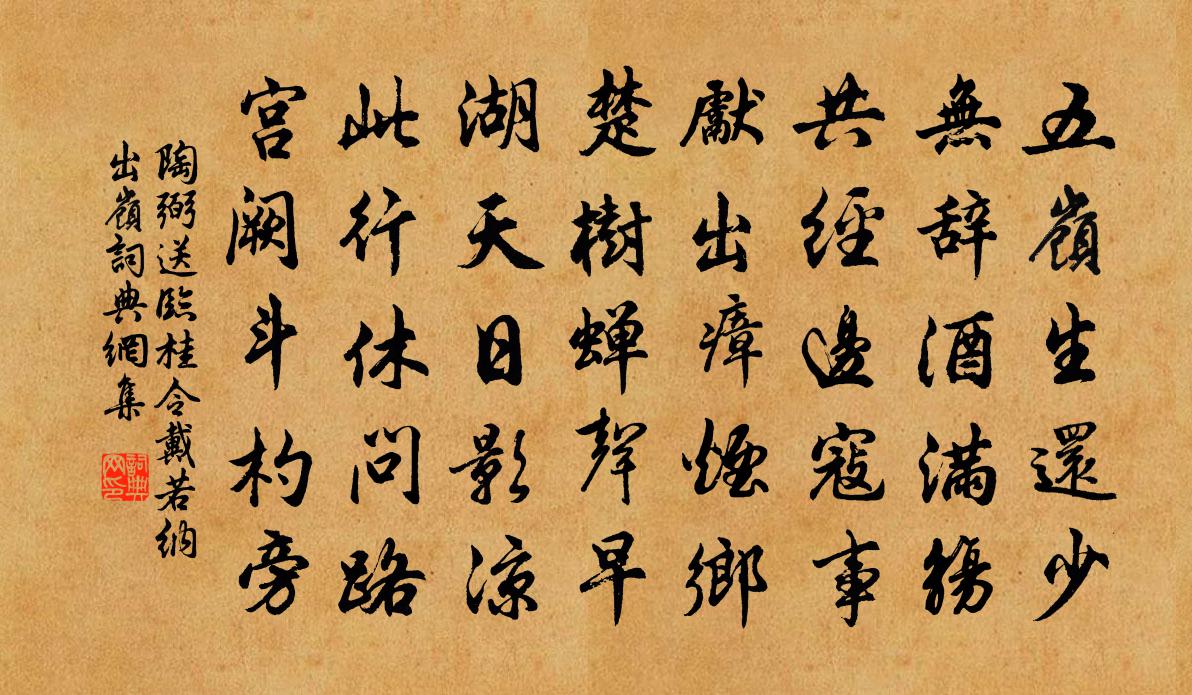 五嶺生還少
無辞酒滿觴
共經邊寇事
獻出瘴煙鄉
楚樹蝉聲早
湖天日影凉
此行休问路
宫阙斗杓旁
陶弼送臨桂令戴若納
出嶺詞典網集
詞典网印